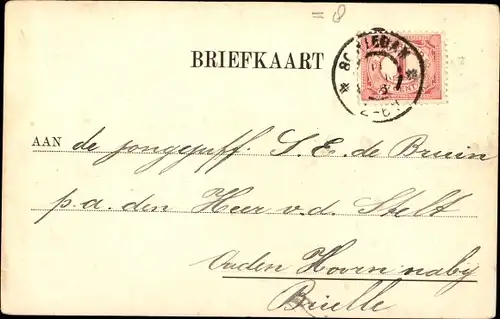 8
BRIEFKAART
SCHIEDAM
2-6N
CENT
AAN de Jongejuff. S. E. de Bruin
p.a. den Heer v.d. Stelt
Ouden Hoorn nabij
Brielle